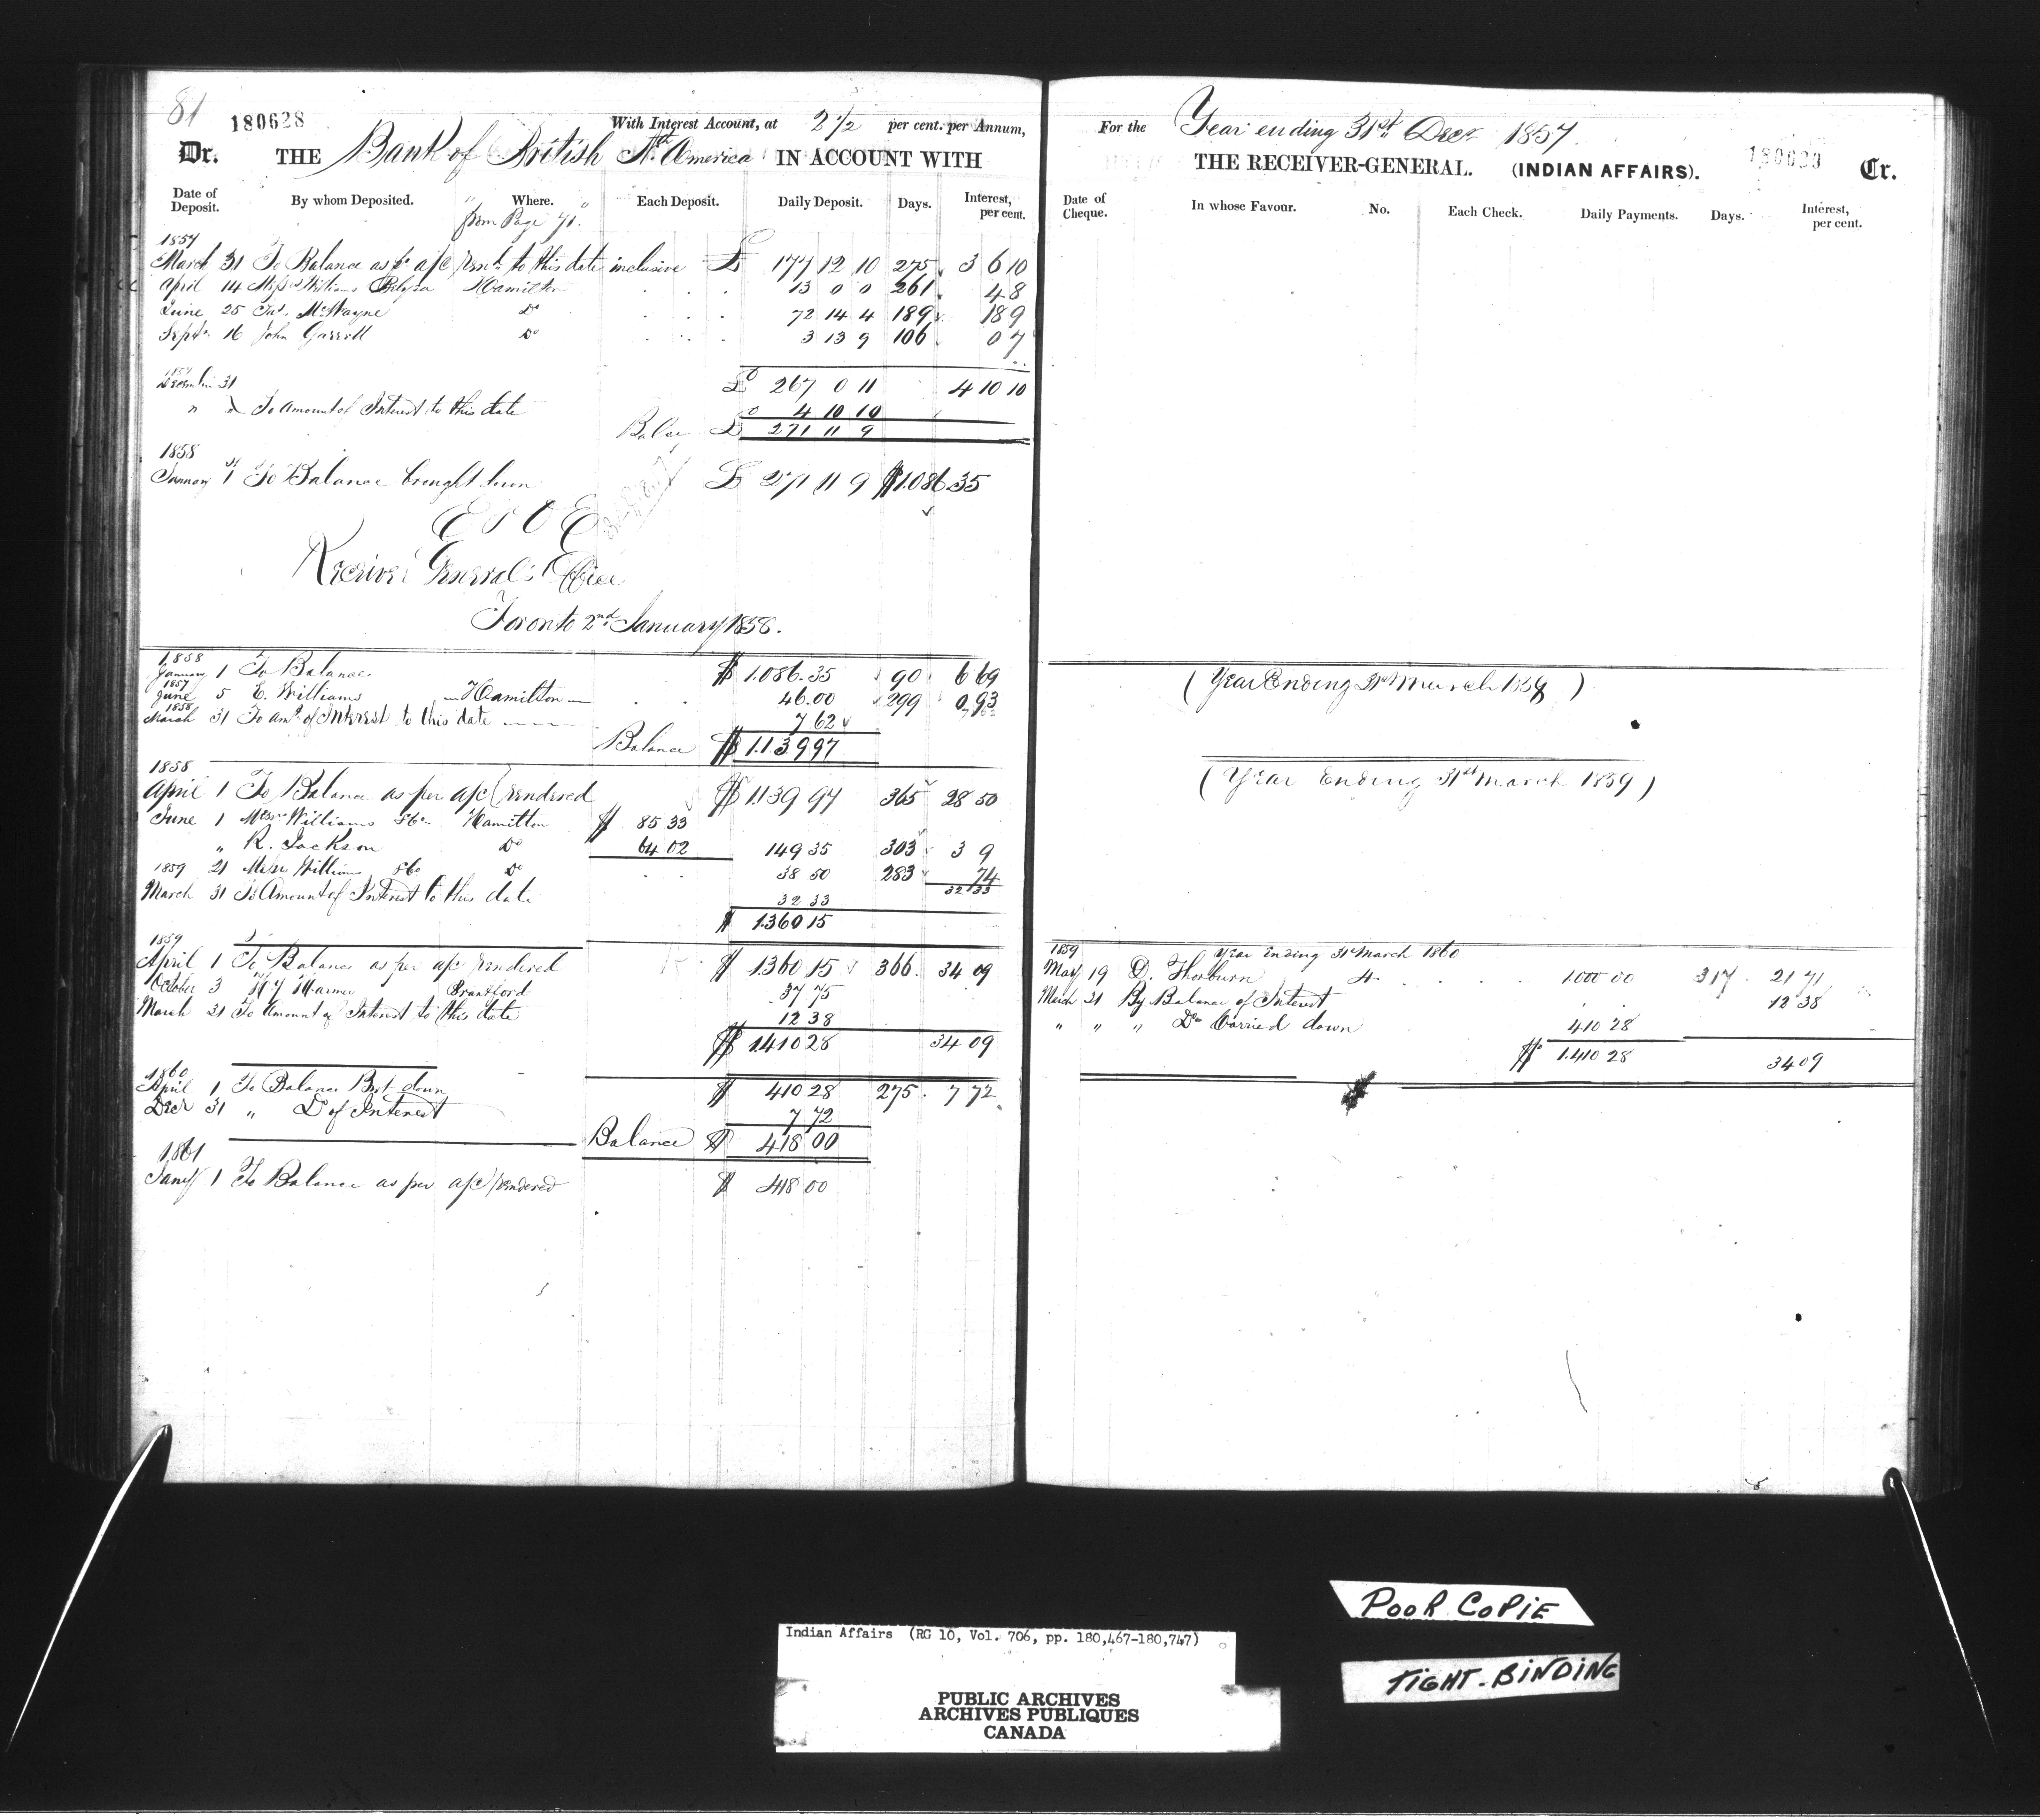 81
180628
With Interest Account, at 2 1/2 per cent. per Annum,
Dr. THE Bank of British Nth America IN ACCOUNT WITH
Date of Deposit. By whom Deposited. Where. Each Deposit. Daily Deposit. Days. Interest, per cent.
" from Page 71. "
1857
March 31 To Balance as pr a/c rend to this date inclusive £ 177 12 10 275 3 6 10
April 14 Williams Hamilton 13 0 0 261 4 8
June 25 Jas. McWayne Do 72 14 4 189 18 9
Septr 16 John Garrett Do 3 13 9 106 0 7
1857
December 31 £ 267 0 11 4 10 10
" " To Amount of Interest to this date 4 10 10
Balce £ 271 11 9
1858
January 1st To Balance brought down £ 271 11 9 $1.086.35
E & O E
Receiver General's Office
Toronto 2nd January 1858.
1858
January 1 To Balance $ 1.086.35 90 6 69
1857
June 5 E. Williams Hamilton 46.00 299 0 93
1858
March 31 To amt of Interest to this date 7 62
Balance $ 1.139 97
1858
April 1 To Balance as per a/c rendered $ 1.139 97 365 28 50
June 1 Messr Williams &Co. Hamilton $ 85 33
" R. Jackson Do 64 02 149 35 303 3 9
21 Messr William &Co Do 38 50 283 74
1859
32 33
March 31 To Amount of Interest to this date 32 33
$ 1.360 15
1859
April 1 To Balance as per a/c rendered $ 1.360 15 366 34 09
October 3 Brantford 37 75
March 31 To Amount of Interest to this date 12 38
$ 1.410 28 34 09
1860
April 1 To Balance Bt. down $ 410 28 275 7 72
Decr 31 " Do of Interest 7 72
Balance $ 418 00
1861
Jany 1 To Balance as per a/c rendered $ 418 00
For the Year ending 31st Decr 1857.
THE RECEIVER-GENERAL. (INDIAN AFFAIRS). Cr.
Date of Cheque. In whose Favour. No. Each Check. Daily Payments. Days. Interest, per cent.
(Year Ending 31st March 1858)
(Year Ending 31st March 1859)
Year Ending 31st March 1860
1859
May 19 D. Thorburn 4. 1.000 00 317 21 71
March 31 By Balance of Interest 12 38
" " " Do Carried down 410 28
$ 1.410 28 34 09
POOR COPIE
TIGHT-BINDING
Indian Affairs (RG 10, Vol. 706, pp. 180,467-180,747)
PUBLIC ARCHIVES
ARCHIVES PUBLIQUES
CANADA